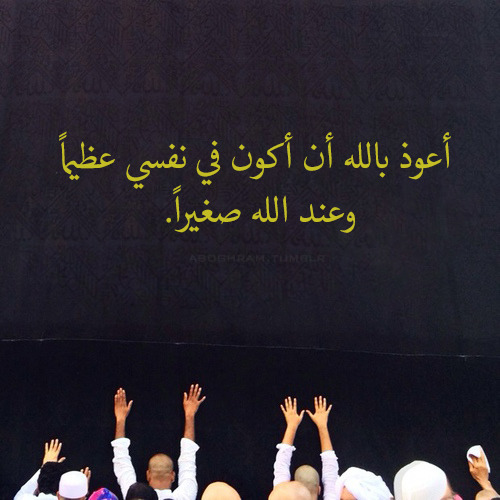 أعوذ بالله أن أكون في نفسي عظيماً
وعند الله صغيراً.